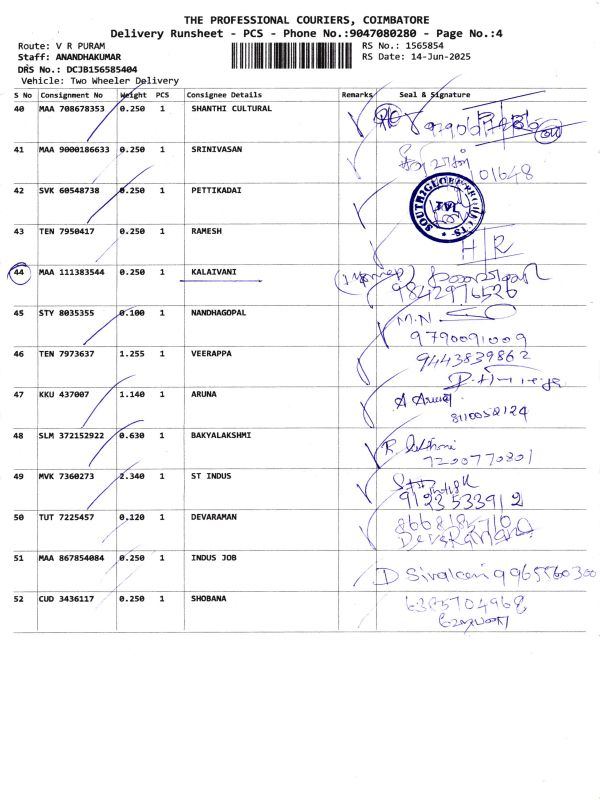 THE PROFESSIONAL COURIERS, COIMBATORE
Delivery Runsheet - PCS - Phone No.:9047080280 - Page No.:4
Route: V R PURAM RS No.: 1565854
Staff: ANANDHAKUMAR RS Date: 14-Jun-2025
DRS No.: DCJB156585404
Vehicle: Two Wheeler Delivery
S No Consignment No Weight PCS Consignee Details Remarks Seal & Signature
40 MAA 708678353 0.250 1 SHANTHI CULTURAL
41 MAA 9000186633 0.250 1 SRINIVASAN
01648
42 SVK 60548738 0.250 1 PETTIKADAI
43 TEN 7950417 0.250 1 RAMESH
H R
44 MAA 111383544 0.250 1 KALAIVANI
9842976526
45 STY 8035355 0.100 1 NANDHAGOPAL M.N
9790091009
46 TEN 7973637 1.255 1 VEERAPPA 9443839862
47 KKU 437007 1.140 1 ARUNA A Aruna
8110052124
48 SLM 372152922 0.630 1 BAKYALAKSHMI
7200770801
49 MVK 7360273 2.340 1 ST INDUS
912353391 2
50 TUT 7225457 0.120 1 DEVARAMAN
51 MAA 867854084 0.250 1 INDUS JOB
9965560300
52 CUD 3436117 0.250 1 SHOBANA 6385704968